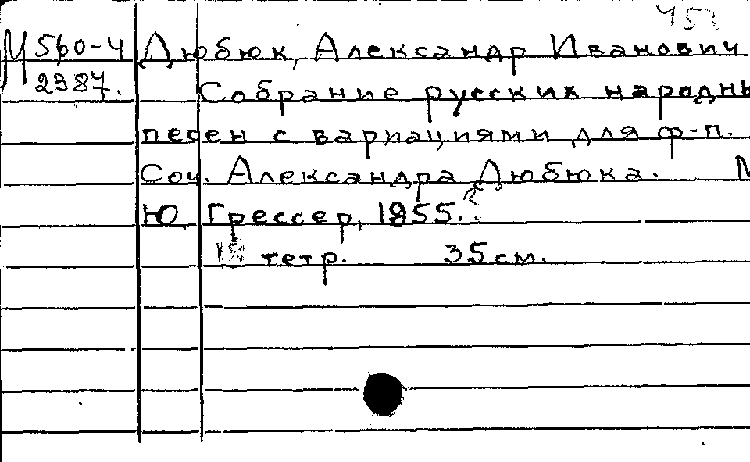 451
М 560-4 Дюбюк, Александр Иванович
2387. Собрание русских народны
песен с вариациями для ф-п.
Соч. Александра Дюбюка. М
Ю. Грессер, 1855.
тетр. 35 см.